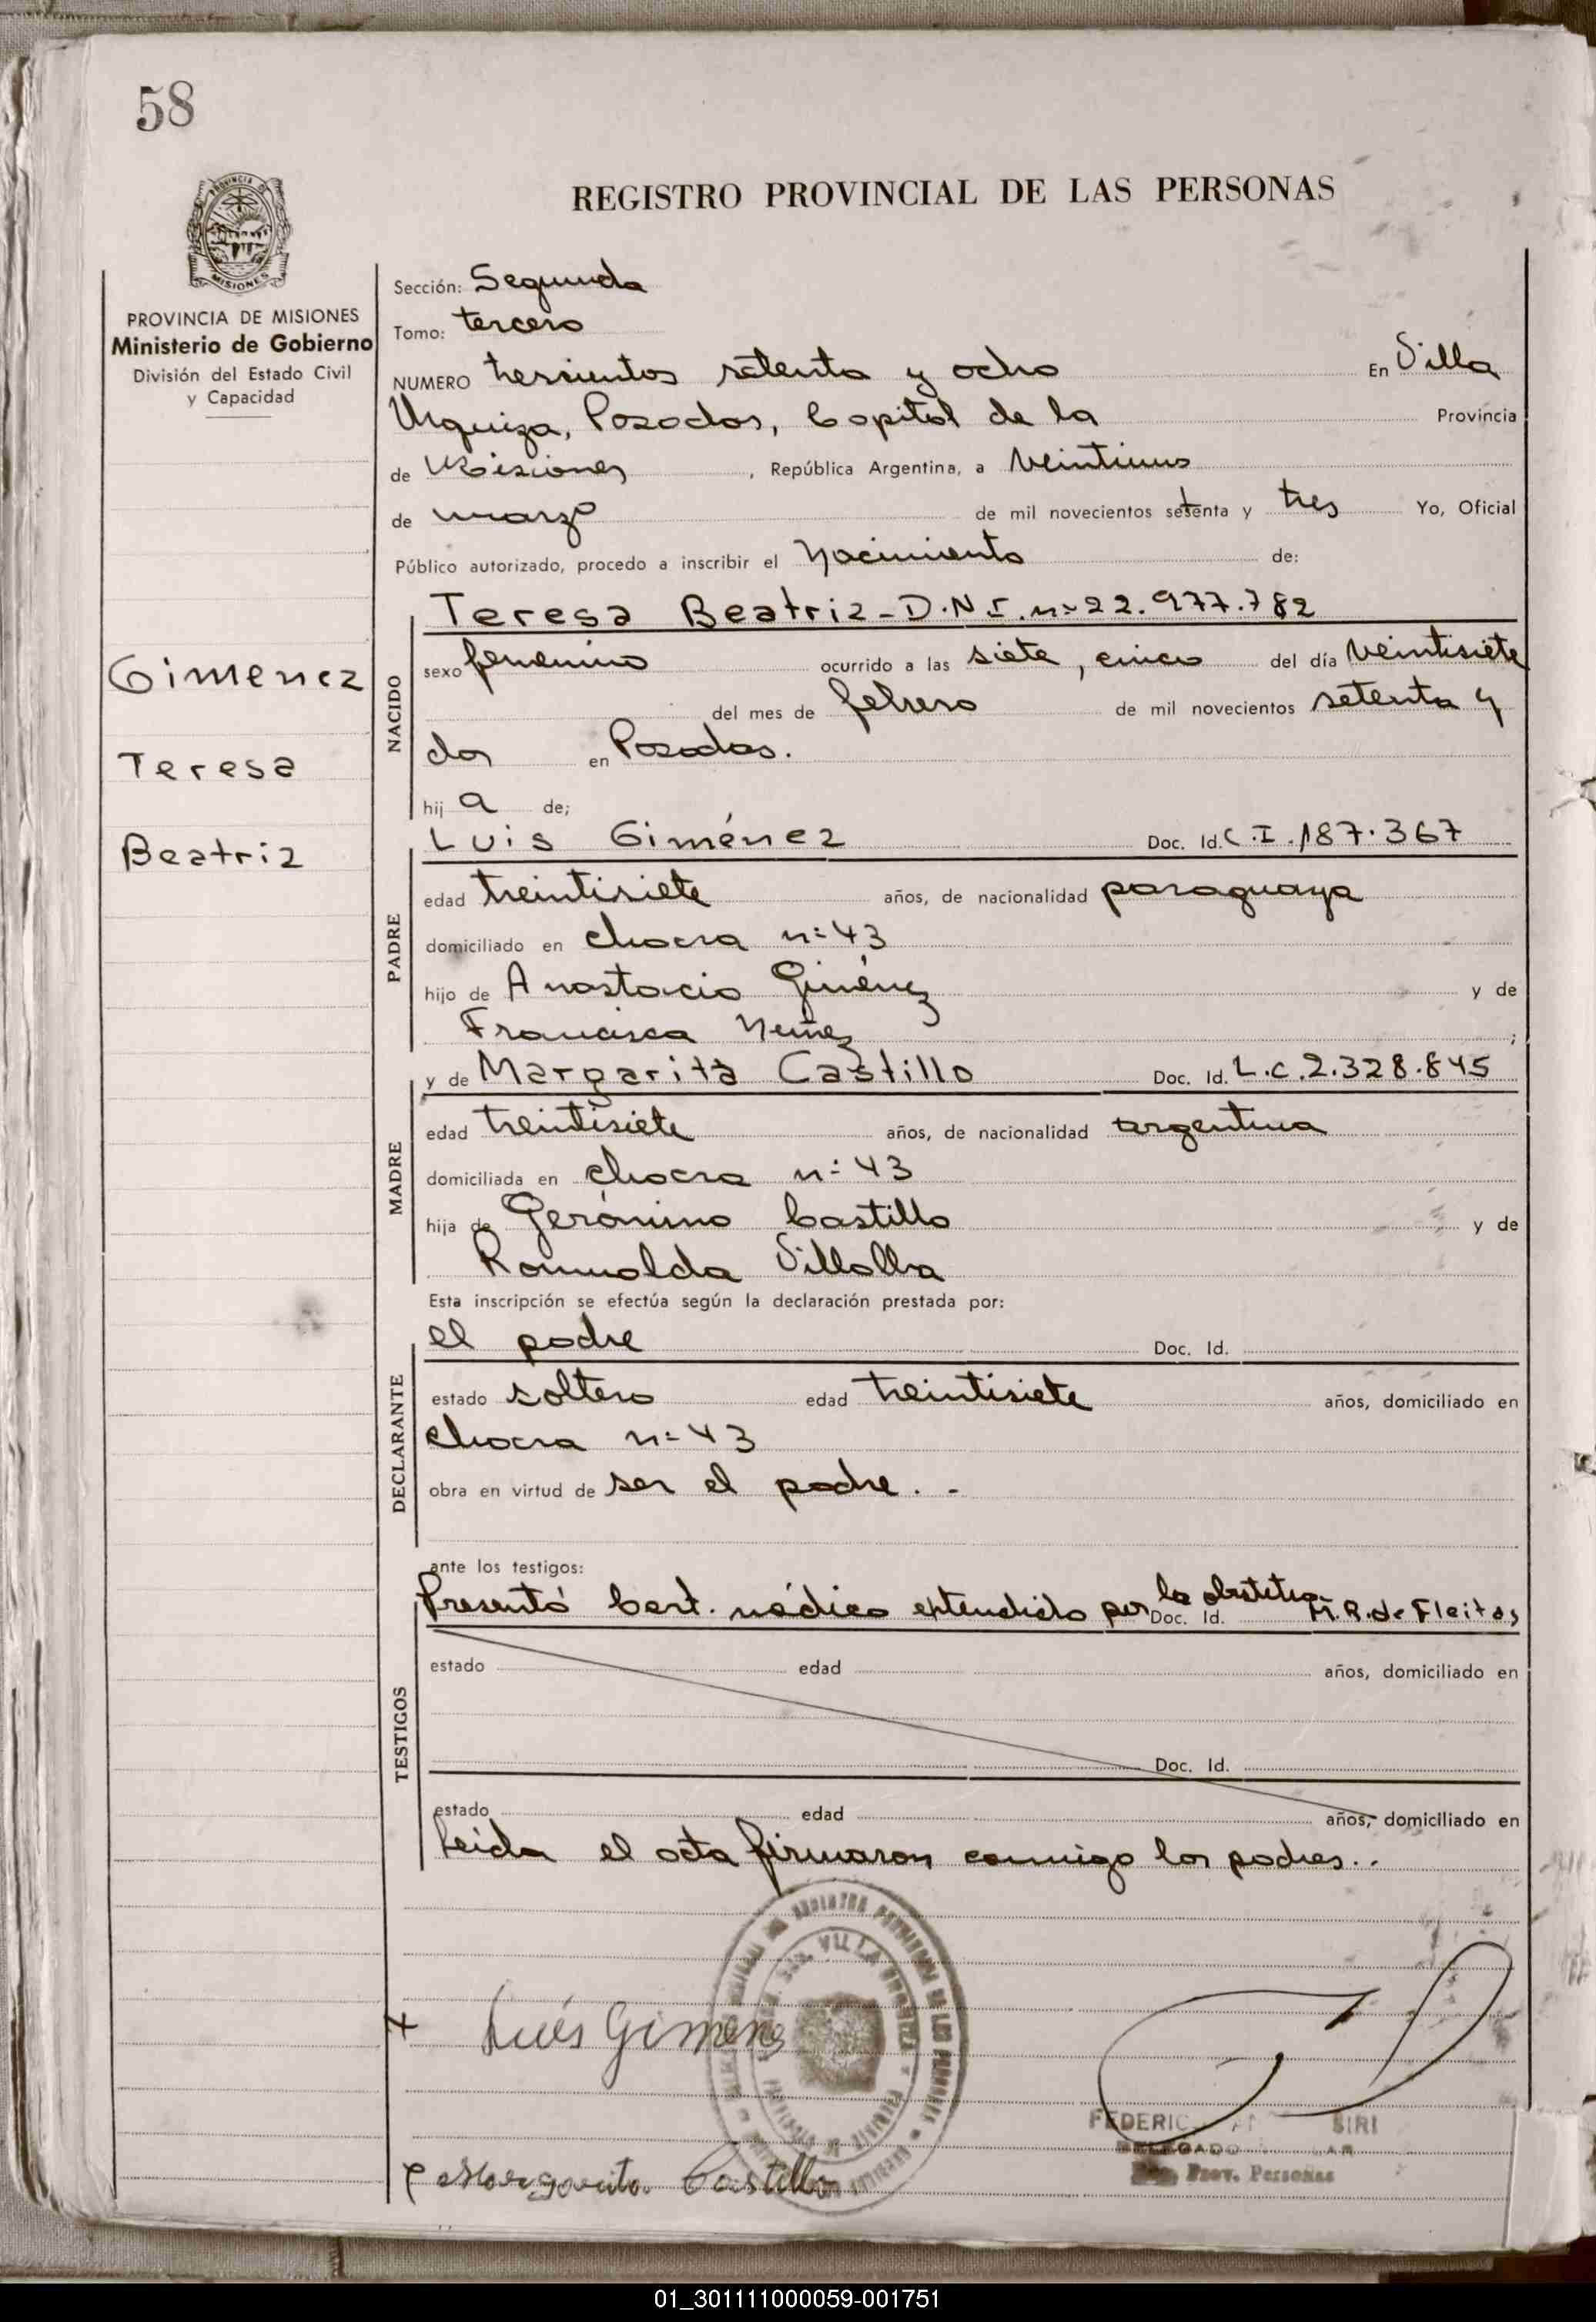 58
PROVINCIA DE
MISIONES
REGISTRO PROVINCIAL DE LAS PERSONAS
PROVINCIA DE MISIONES
Ministerio de Gobierno
División del Estado Civil
y Capacidad
Gimenez
Teresa
Beatriz
Sección: Segunda
Tomo: tercero
NUMERO tresientos setenta y ocho En Villa
Urquiza, Posadas, Capital de la Provincia
de Misiones, República Argentina, a veintiuno
de marzo de mil novecientos setenta y tres Yo, Oficial
Público autorizado, procedo a inscribir el Nacimiento de:
NACIDO
Teresa Beatriz - D.N.I. nº 22.977.782
sexo femenino ocurrido a las siete, cinco del día veintisiete
del mes de febrero de mil novecientos setenta y
dos en Posadas.
hij a de;
PADRE
Luis Giménez Doc. Id. C.I. 187.367
edad treintisiete años, de nacionalidad paraguaya
domiciliado en chacra nº 43
hijo de Anastacio Giménez y de
Francisca ;
MADRE
y de Margarita Castillo Doc. Id. L.C. 2.328.845
edad treintisiete años, de nacionalidad argentina
domiciliada en chacra nº 43
hija de Gerónimo Castillo y de
Romualda Villalba
Esta inscripción se efectúa según la declaración prestada por:
DECLARANTE
el padre Doc. Id.
estado soltero edad treintisiete años, domiciliado en
chacra nº 43
obra en virtud de ser el padre. -
ante los testigos:
TESTIGOS
Presentó Cert. médico extendido por la obstetra Doc. Id. M.R. de Fleitas
estado edad años, domiciliado en
Doc. Id.
estado edad años, domiciliado en
Leida el acta firmaron conmigo los padres..
VILLA URQUIZA
Luis Gimenes
Margarita Castillo
FEDERIC SIRI
DELEGADO
Prov. Personas
01_301111000059-001751